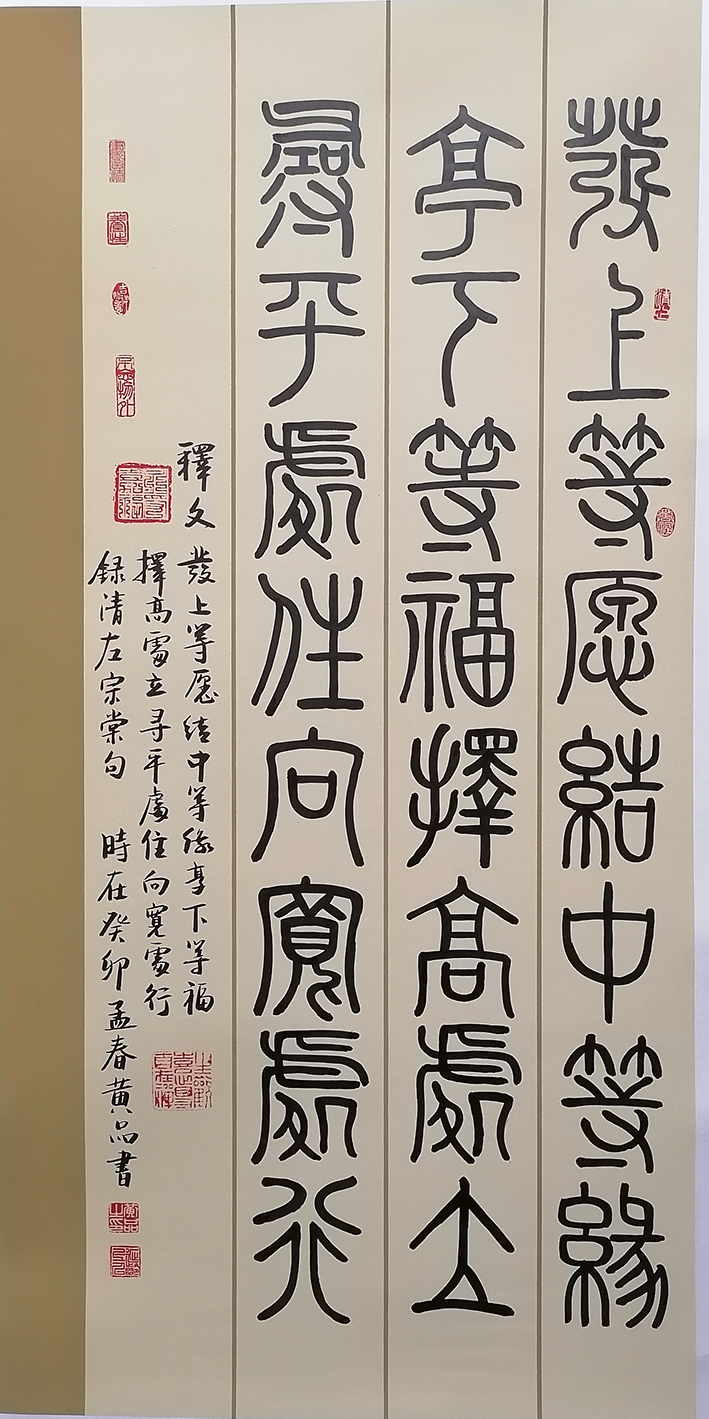 發上等愿結中等緣
享下等福擇高處立
尋平處住向寬處行
釋文 發上等愿結中等緣享下等福
擇高處立寻平處住向寬處行
録清左宗棠句 時在癸卯孟春黄品書